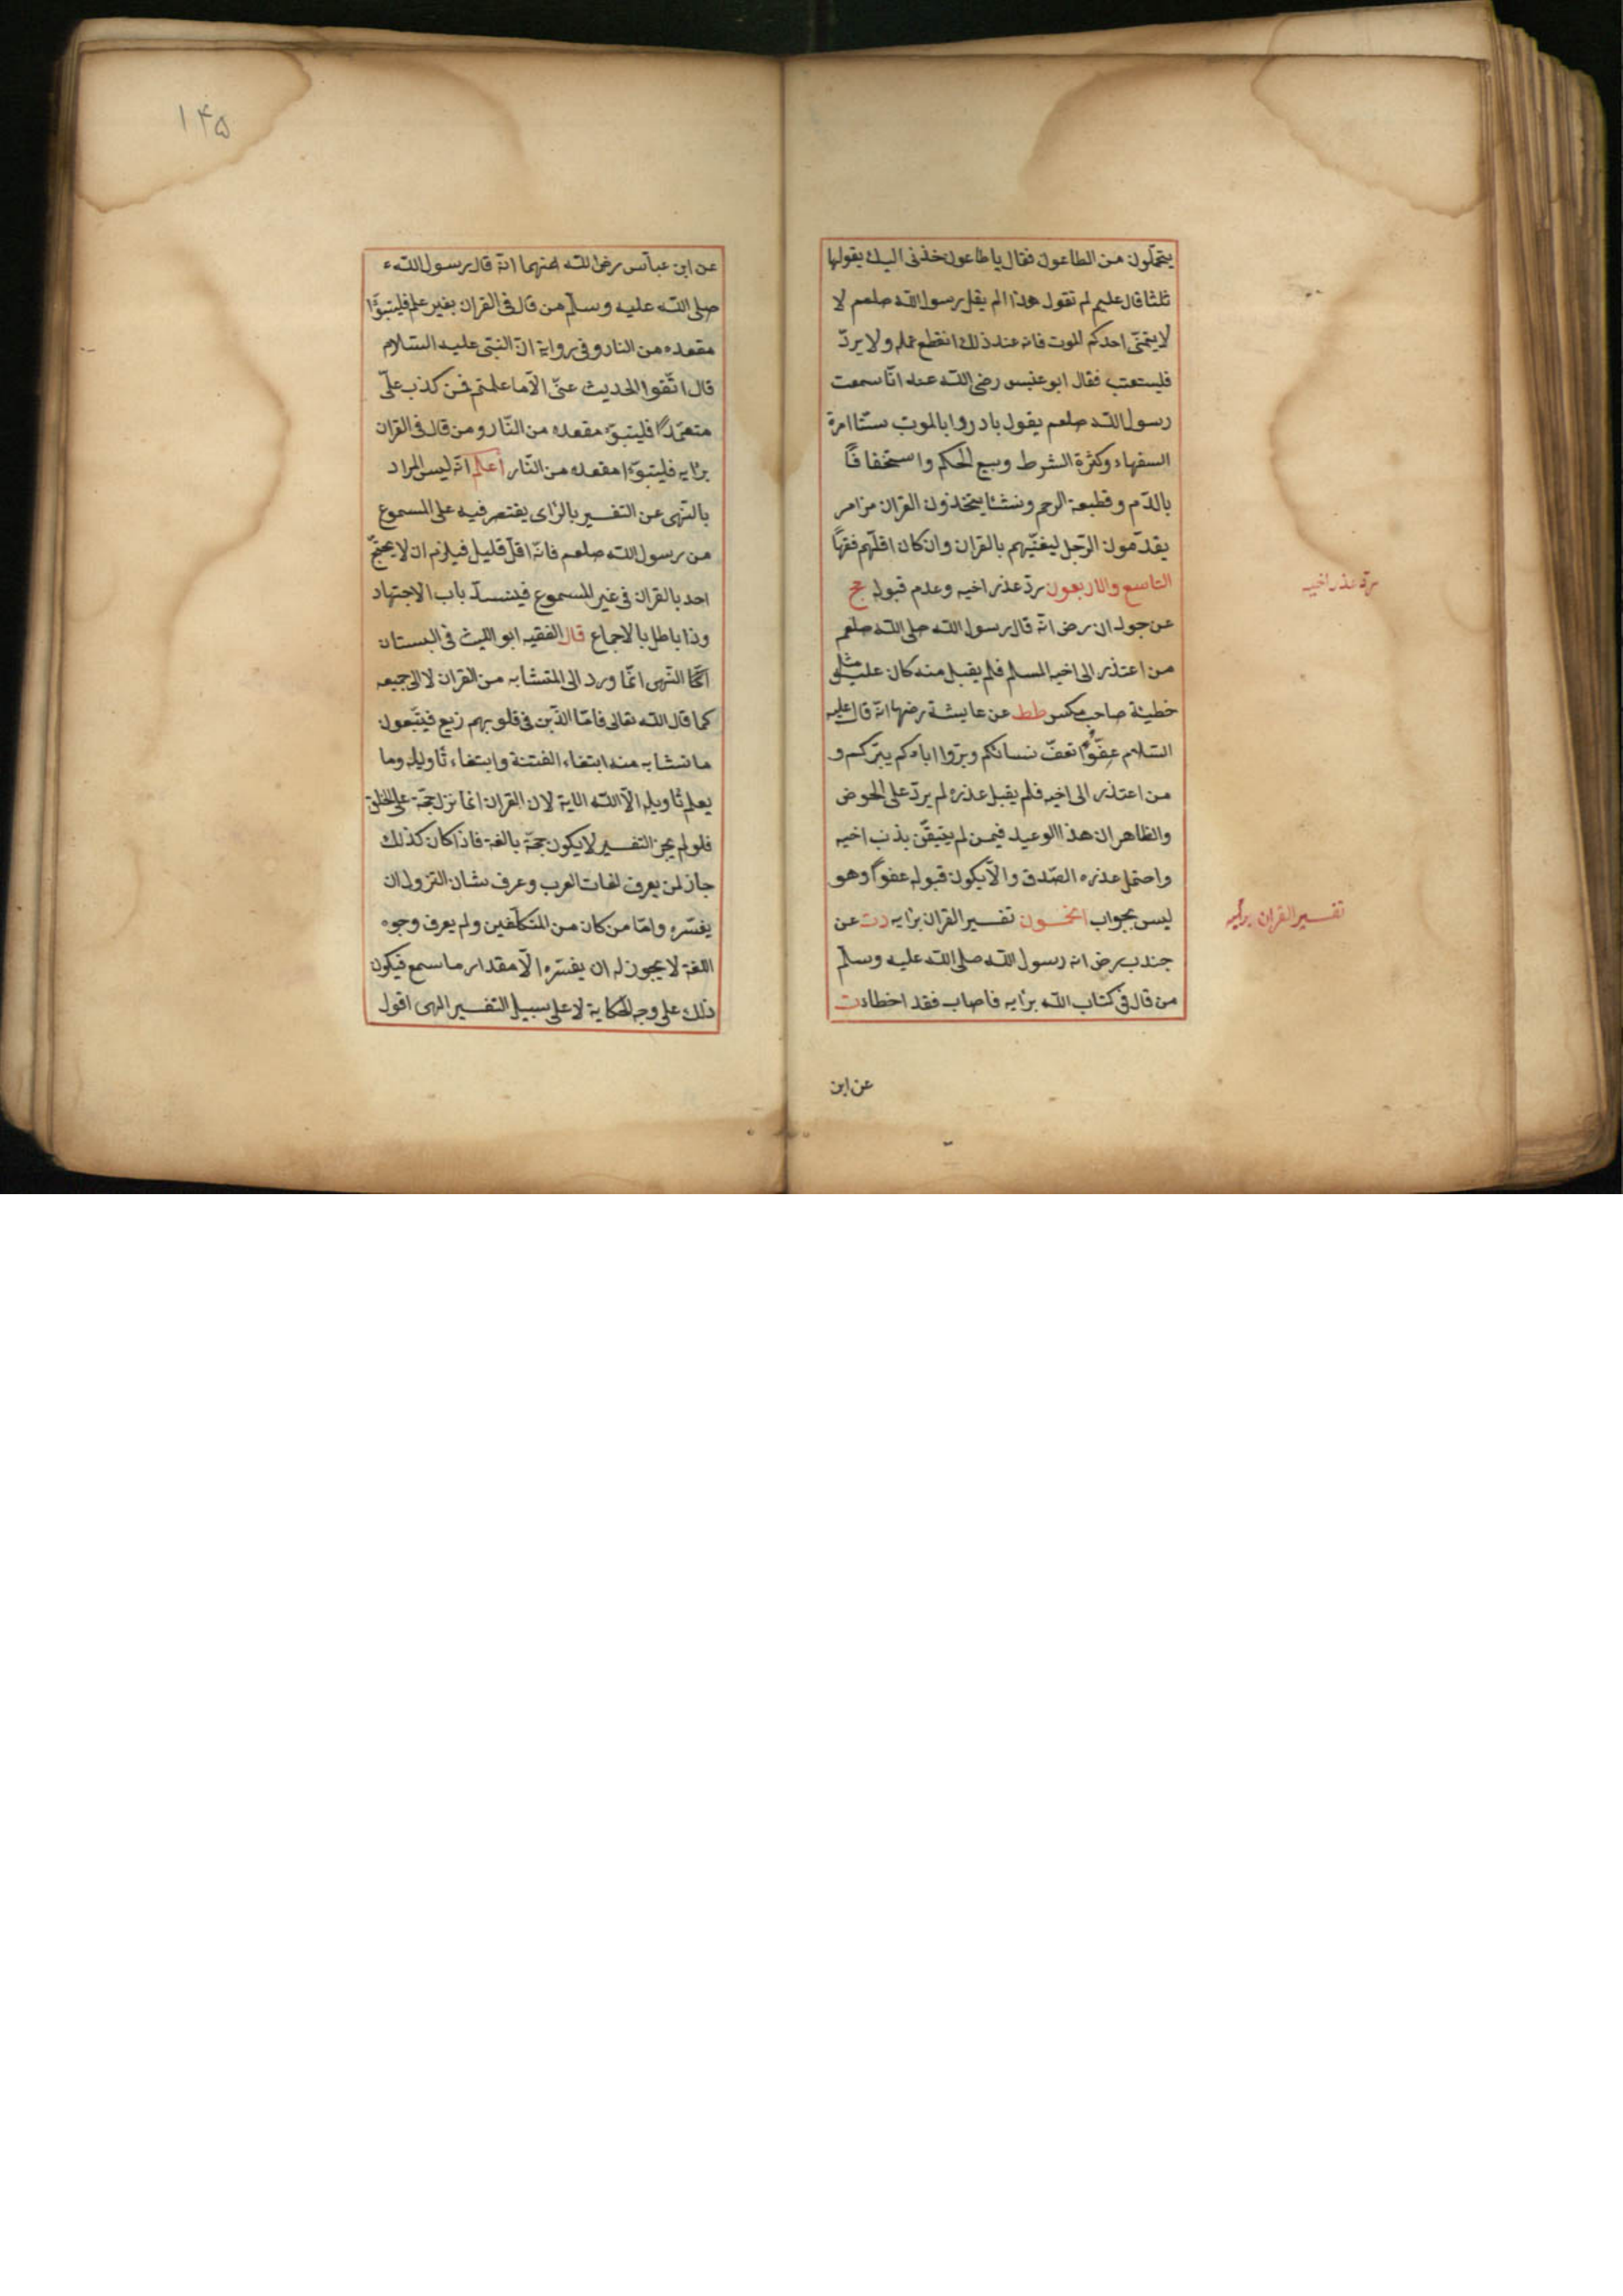 يتحملون من الطاعون فقال يا طاعون خذنى اليك يقولها
ثلثا قال عليم لم تقول هذا الم يقل رسول الله صلعم لا
لا يتمنّى احدكم الموت فانه عند ذلك انقطع عمله ولا يردّ
فليستعتب فقال ابو عنبس رضى الله عنه انّا سمعت
رسول الله صلعم يقول بادروا بالموت ستّا امرة
السفهاء وكثرة الشرط وبيع الحكم واستخفافاً
بالدّم وقطيعة الرحم ونشئا يتخذون القران مزامر
يقدّمون الرّجل ليغنّيهم بالقران وان كان اقلّهم فقهاً
التاسع والاربعون ردّ عذر اخيه وعدم قبوله مج
عن جودان رض انّه قال رسول الله صلى الله صلعم
من اعتذر الى اخيه المسلم فلم يقبل منه كان عليه مثل
خطيئة صاحب مكس طط عن عايشة رضها انّه قال عليه
السّلام عفّوا تعفّ نساؤكم وبرّوا اباءكم يبرّكم و
من اعتذر الى اخيه فلم يقبل عذره لم يرد على الحوض
والظاهر ان هذا الوعيد فيمن لم يتيقّن بذنب اخيه
واحتمل عذره الصّدق والّا يكون قبوله عفواً وهو
ليس بجواب الخمسون تفسير القران برأيه دت عن
جندب رض انه رسول الله صلى الله عليه وسلّم
من قال فى كتاب الله برأيه فاصاب فقد اخطأ دت
ردّ عذر اخيه
تفسير القران برأيه
عن ابن
١۴۵
عن ابن عبّاس رضى الله عنهما انّه قال رسول الله
صلى الله عليه وسلّم من قال فى القران بغير علم فليتبوّأ
مقعده من النار وفى رواية انّ النبّى عليه السّلام
قال اتّقوا الحديث عنّى الّا ما علمتم فمن كذب علىّ
متعمّداً فليتبوّء مقعده من النّار ومن قال فى القران
برأيه فليتبوّءا مقعده من النّار اعلم انّه ليس المراد
بالنّهى عن التفسير بالرّأى يقتصر فيه على المسموع
من رسول الله صلعم فانّه اقلّ قليل فيلزم ان لا يحتجّ
احد بالقران فى غير المسموع فينسدّ باب الاجتهاد
وذا باطل بالاجماع قال الفقيه ابو الليث فى البستان
النّهى انّما ورد الى المتشابه من القران لا الى جميعه
كما قال الله تعالى فامّا الذّين فى قلوبهم زيغ فيتّبعون
ما تشابه منه ابتغاء الفتنة وابتغاء تأويله وما
يعلم تأويله الّا الله الاية لان القران انما نزل حجّة على الخلق
فلو لم يجز التفسير لا يكون حجّة بالغة فاذا كان كذلك
جاز لمن يعرف لغات العرب وعرف شان النزول ان
يفسّره وامّا من كان من المتكلّفين ولم يعرف وجوه
اللغة لا يجوز له ان يفسّره الّا مقدار ما سمع فيكون
ذلك على وجه الحكاية لا على سبيل التفسير انهى اقول